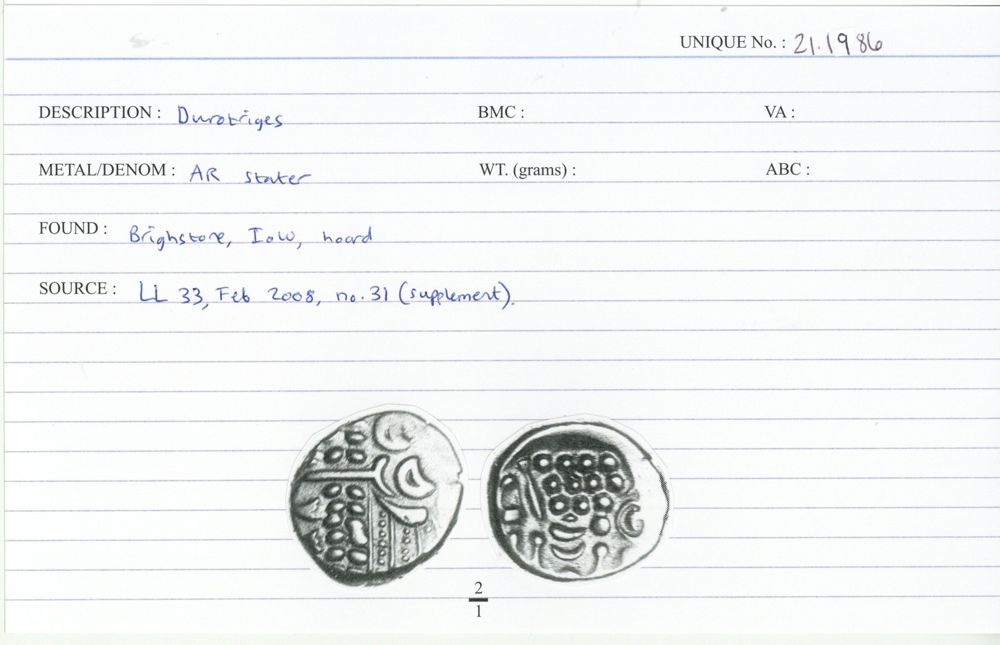 UNIQUE No. : 21.1986
DESCRIPTION : Durotriges BMC : VA :
METAL/DENOM : AR stater WT. (grams) : ABC :
FOUND : Brighstone, IoW, hoard
SOURCE : LL 33, Feb 2008, no. 31 (supplement).
2
1